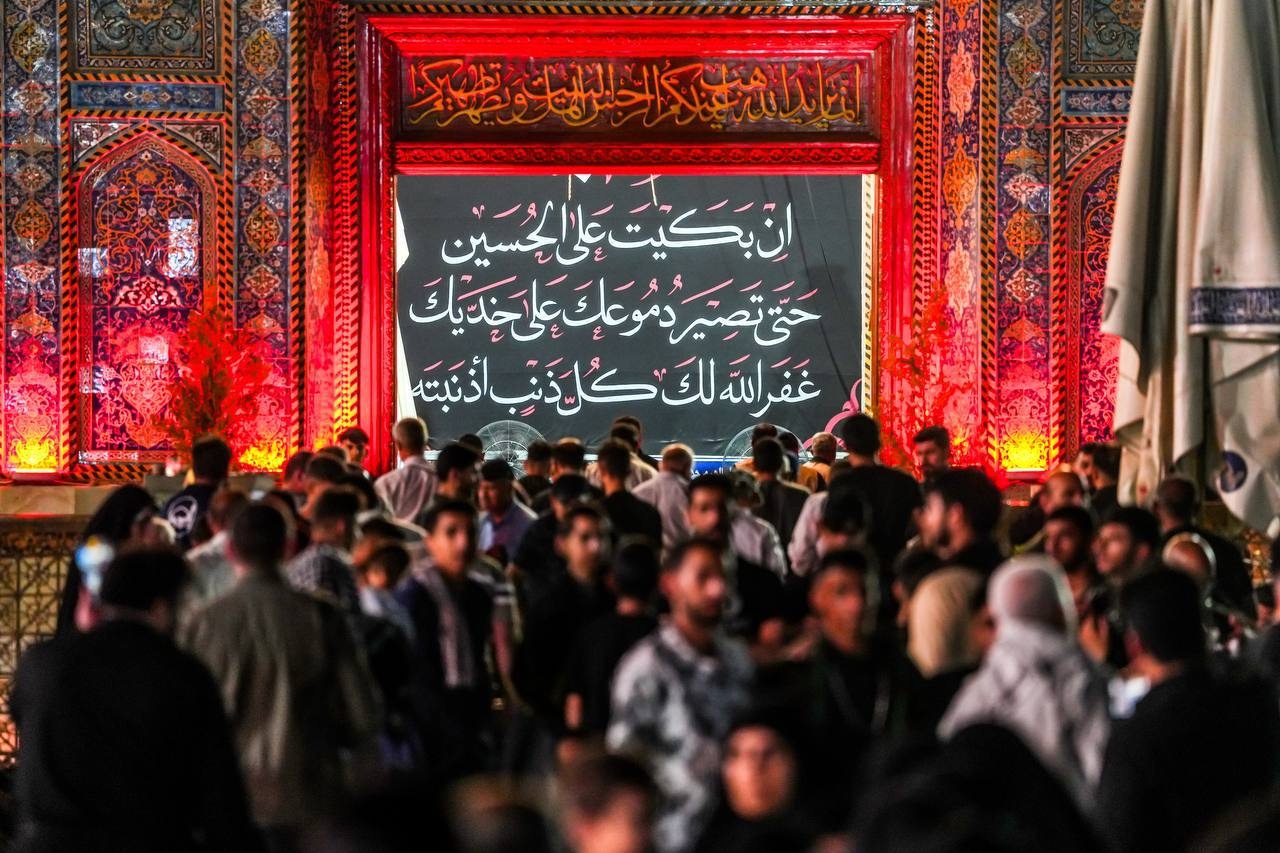 إنما يريد الله ليذهب عنكم الرجس أهل البيت ويطهركم
اِنْ بَكَيتَ عَلَى الحُسَين
حَتّى تَصِيرَ دُمُوعَكَ عَلى خَدَّيكَ
غَفَرَ اللّٰه لَكَ كُلَّ ذَنبٍ أذنَبتَه